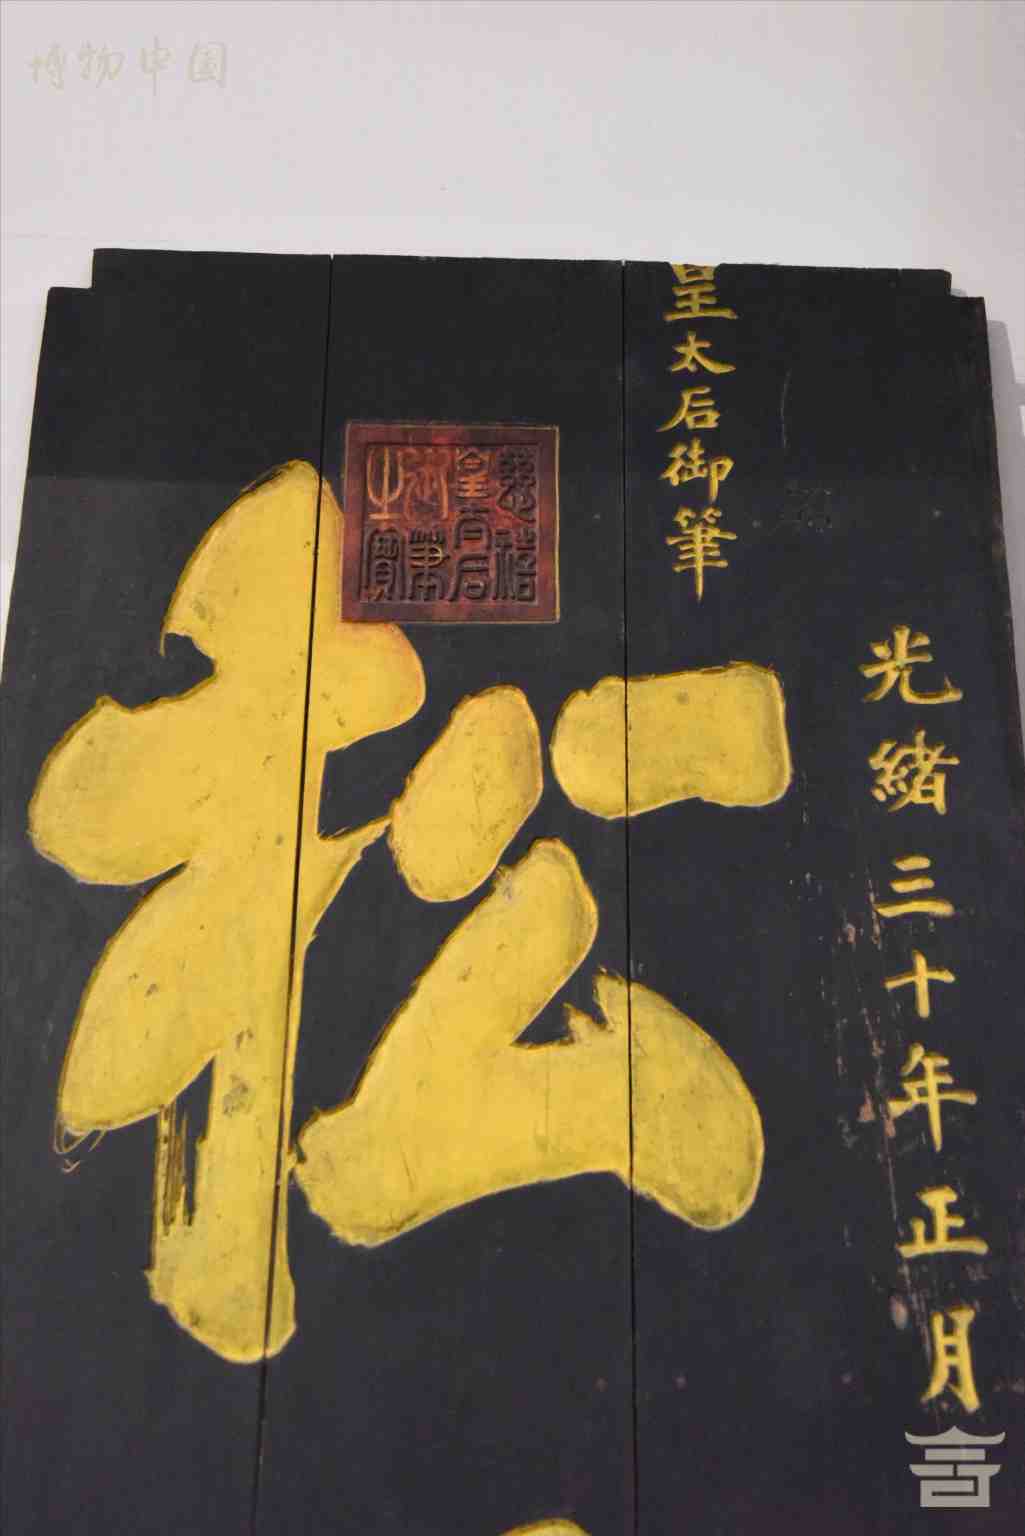 博物中国
光緒三十年正月
皇太后御筆
慈禧
皇太后
御筆
之寳
松